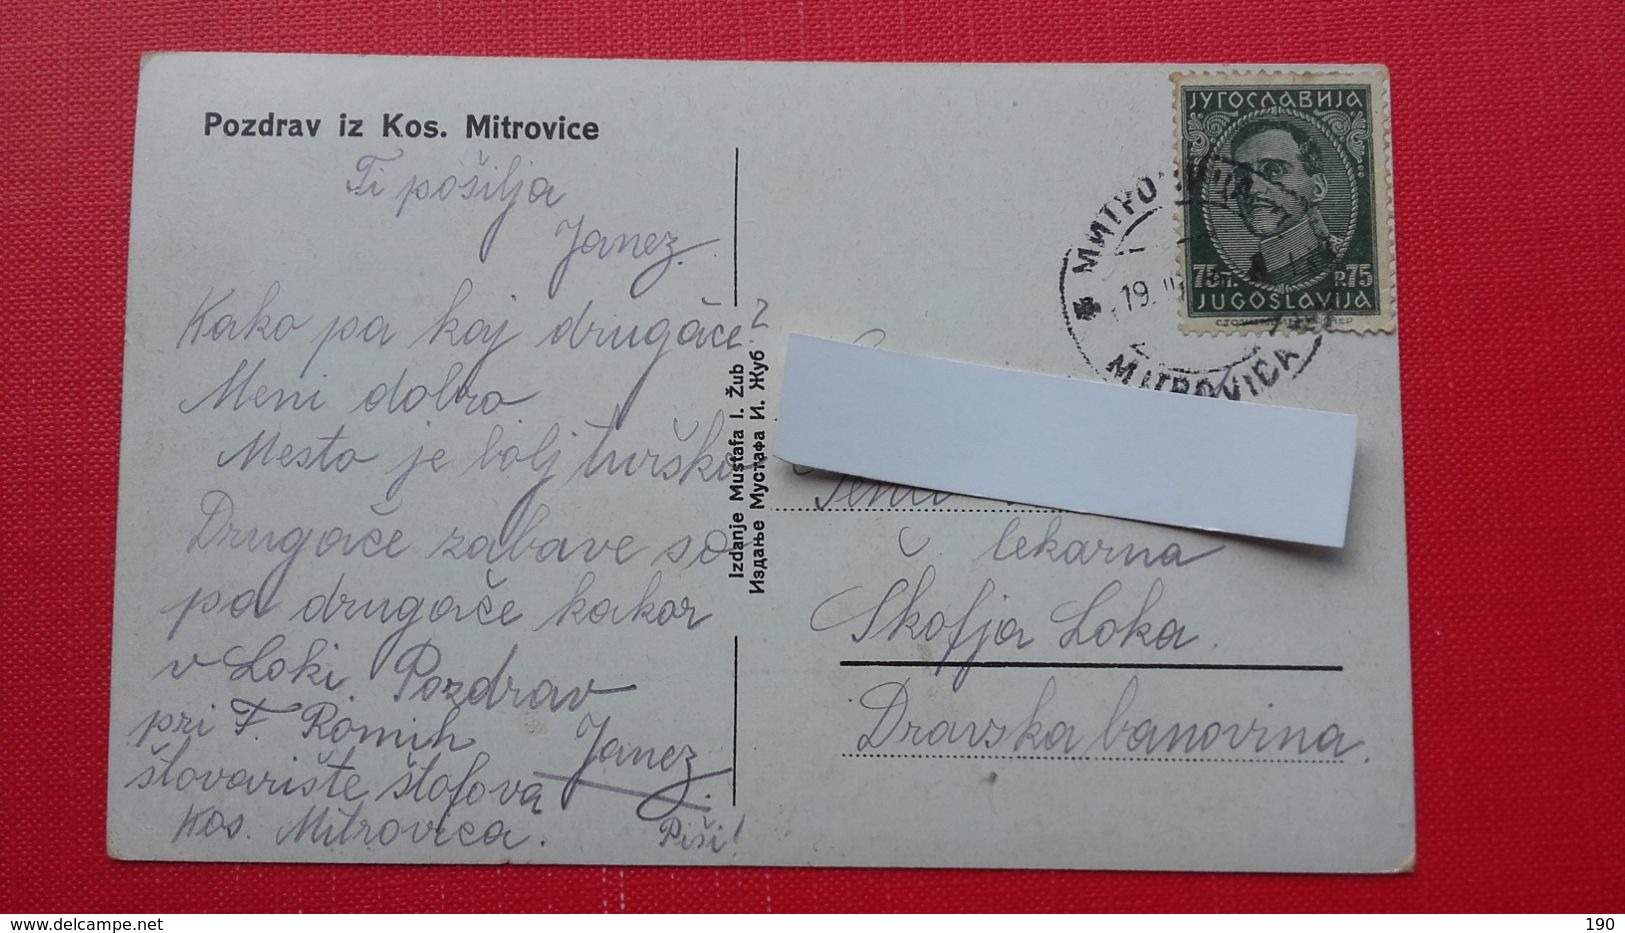 Pozdrav iz Kos. Mitrovice
Ti pošilja
Janez.
Kako pa kaj drugače?
Meni dobro.
Mesto je bolj turško
Drugače zabave so
pa drugače kakor
v Loki. Pozdrav
Janez.
pri F. Romih
štovarište štofova
Kos. Mitrovica.
Piši!
Izdanje Mustafa I. Žub
Издање Мустафа И. Жуб
ЈУГОСЛАВИЈА
75П. P.75
JUGOSLAVIJA
19. III
MITROVICA
lekarna
Škofja Loka.
Dravska banovina.
190